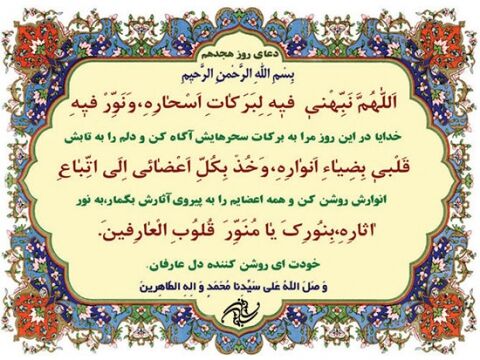 دعای روز هجدهم
بِسْمِ اللهِ الرَّحْمنِ الرَّحیمِ
اَللّهُمَّ نَبِّهْنی فیهِ لِبَرَکاتِ اَسْحارِهِ،وَنَوِّرْ فیهِ
خدایا در این روز مرا به برکات سحرهایش آگاه کن و دلم را به تابش
قَلْبی بِضِیاءِ اَنوارِهِ،وَخُذْ بِکُلِّ اَعْضائی اِلَی اتِّباعِ
انوارش روشن کن و همه اعضایم را به پیروی آثارش بگمار،به نور
اثارِهِ،بِنُورِکَ یا مُنَوِّرَ قُلُوبِ الْعارِفینَ.
خودت ای روشن کننده دل عارفان.
وَ صَلَّ اللهُ عَلی سَیِّدِنا مُحَمَدٍ وَ الِهِ الطّاهِرینَ